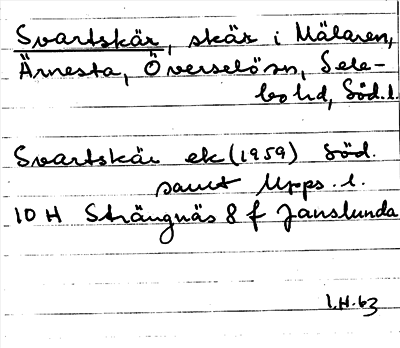 Svartskär, skär i Mälaren,
Ärnesta, Överselö sn, Sele-
bo hd, Söd.l.
Svartskär ek (1959) Söd.
samt Upps. l.
10 H Strängnäs 8 f Janslunda
I.H.63